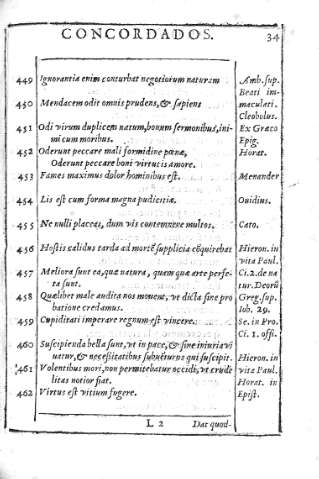 CONCORDADOS. 34
449 Ignorantia enim conturbat negotiorum naturam Amb. sup.
Beati im-
450 Mendacem odit omnis prudens, & sapiens maculati.
Cleobolus.
451 Odi virum duplicem natum, bonum sermonibus, ini- Ex Græco
mi cum moribus. Epig.
452 Oderunt peccare mali formidine pœnæ, Horat.
Oderunt peccare boni virtutis amore.
453 Fames maximus dolor hominibus est. Menander
454 Lis est cum forma magna pudicitiæ. Ouidius.
455 Ne nulli placeas, dum vis contemnere multos. Cato.
456 Hostis calidus tarda ad mortē supplicia cōquirebat Hieron. in
vita Paul.
457 Meliora sunt ea, quæ natura, quem quæ arte perfe- Ci. 2. de na
cta sunt. tur. Deorū
458 Quælibet male audita nos mouent, vt dicta sine pro Greg. sup.
batione credamus. Iob. 29.
459 Cupiditati imperare regnum est vincere. Se. in Pro.
Ci. 1. offi.
460 Suscipienda bella sunt, vt in pace, & sine iniuria vi
uatur, & necessitatibus qui suscipit. Hieron. in
461 Volentibus mori, non permitebatur occidi, vt crude vita Paul.
litas notior fiat. Horat. in
462 Virtus est vitium fugere. Epist.
L 2 Dat quod-